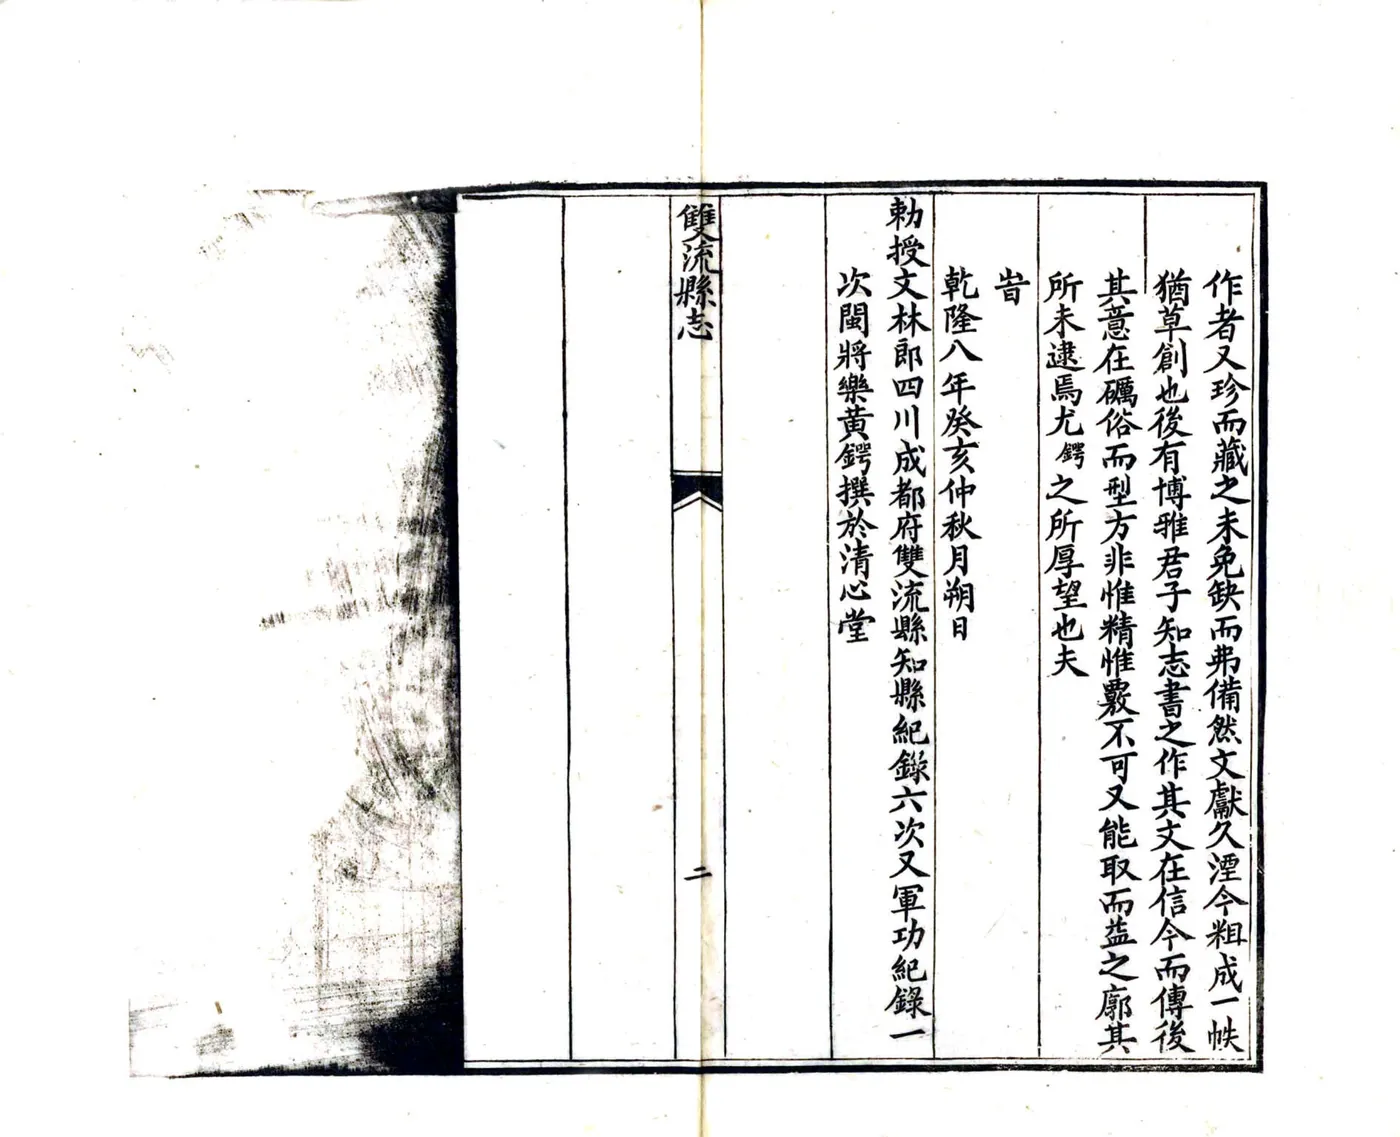 作者又珍而藏之未免缺而弗備然文獻久湮今粗成一帙
猶草創也後有博雅君子知志書之作其文在信今而傳後
其意在礪俗而型方非惟精惟覈不可又能取而益之廓其
所未逮焉尤鍔之所厚望也夫
旹
乾隆八年癸亥仲秋月朔日
勅授文林郎四川成都府雙流縣知縣紀錄六次又軍功紀錄一
次閩將樂黄鍔撰於清心堂
雙流縣志
二